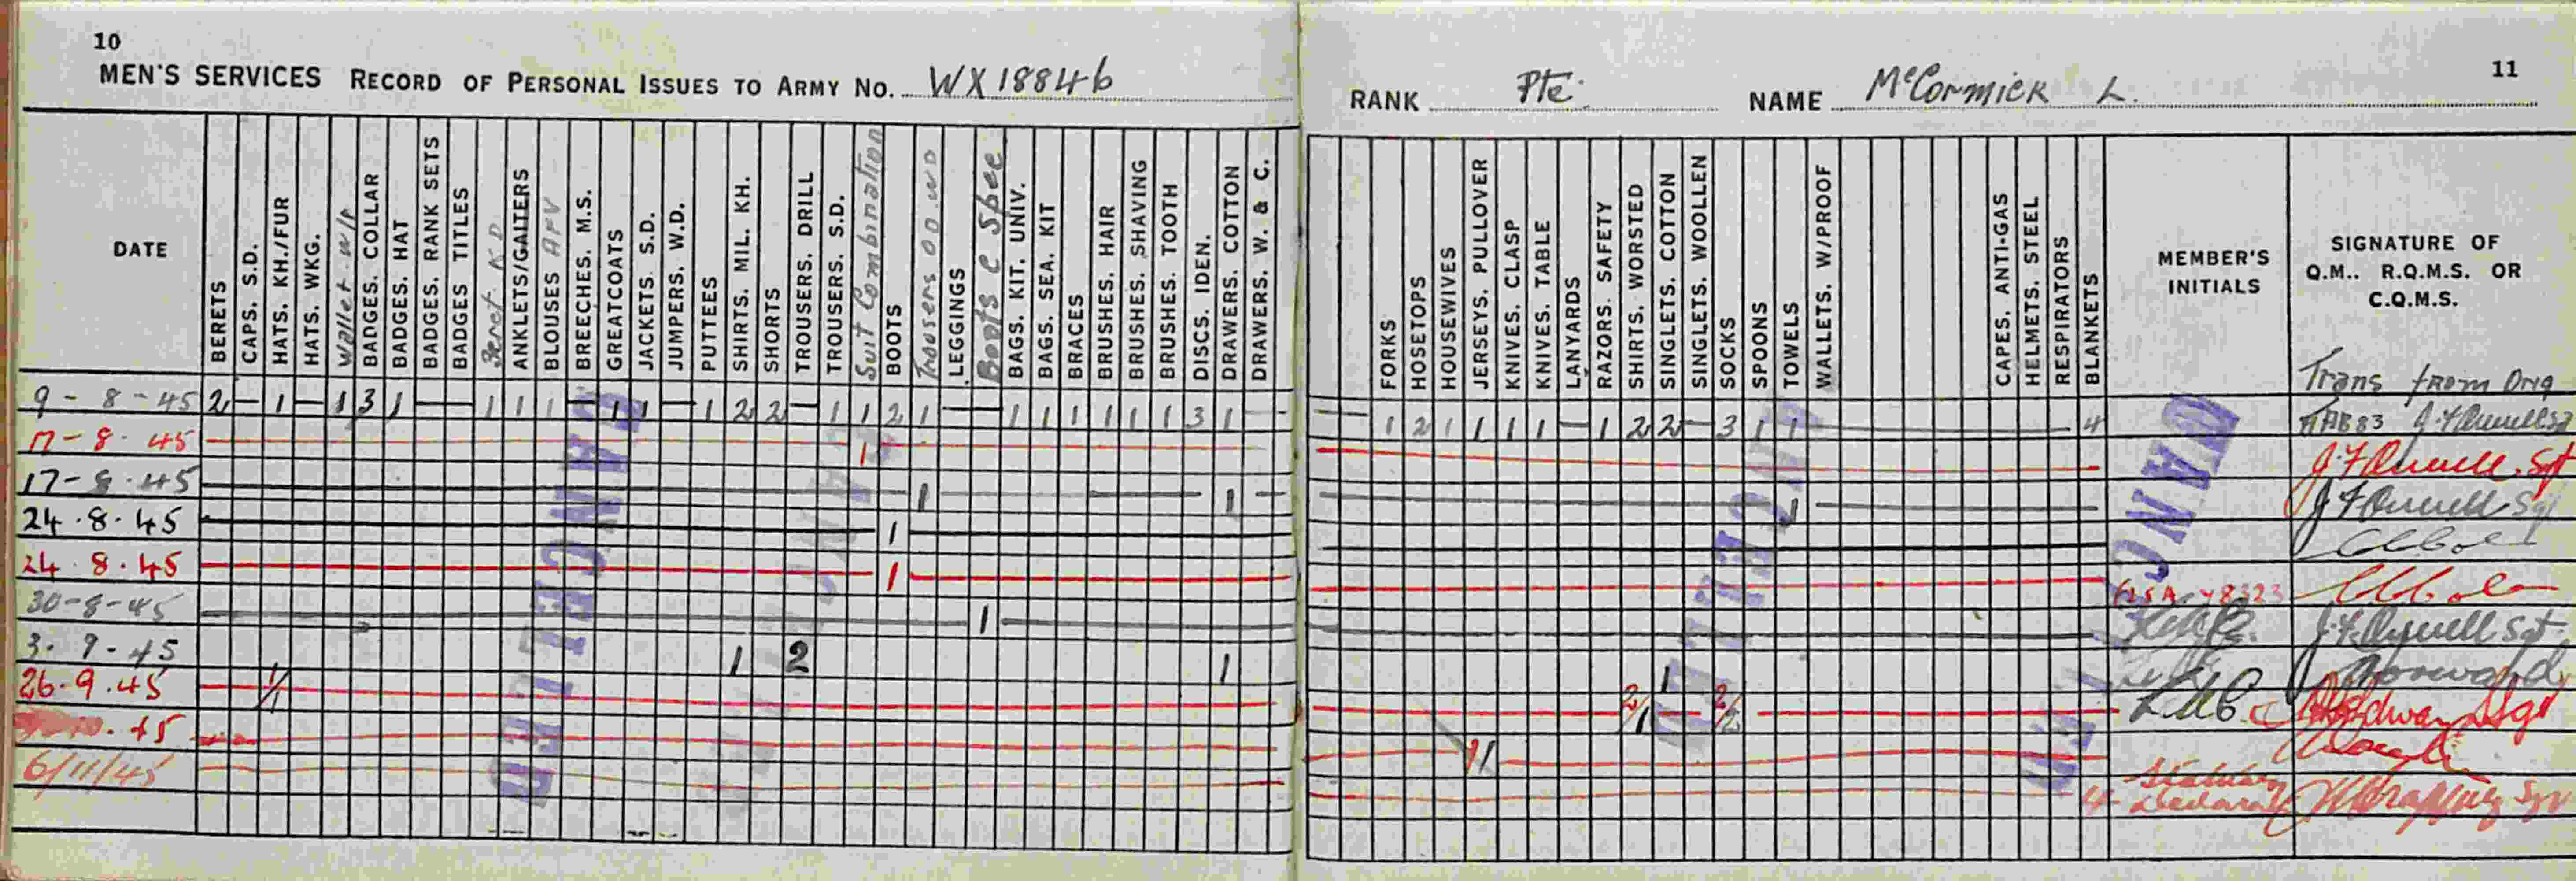 10
MEN'S SERVICES RECORD OF PERSONAL ISSUES TO ARMY No. WX18846
RANK Pte. NAME McCormick L.
11
DATE
BERETS
CAPS. S.D.
HATS. KH./FUR
HATS. WKG.
Wallet W/P
BADGES. COLLAR
BADGES. HAT
BADGES. RANK SETS
BADGES TITLES
Beret K.D
ANKLETS/GAITERS
BLOUSES AFV
BREECHES. M.S.
GREATCOATS
JACKETS S.D.
JUMPERS. W.D.
PUTTEES
SHIRTS. MIL. KH.
SHORTS
TROUSERS. DRILL
TROUSERS. S.D.
Suit Combination
BOOTS
Trousers OD WD
LEGGINGS
Boots C Spec
BAGS. KIT. UNIV.
BAGS. SEA. KIT
BRACES
BRUSHES. HAIR
BRUSHES. SHAVING
BRUSHES. TOOTH
DISCS. IDEN.
DRAWERS. COTTON
DRAWERS. W. & C.
FORKS
HOSETOPS
HOUSEWIVES
JERSEYS. PULLOVER
KNIVES. CLASP
KNIVES. TABLE
LANYARDS
RAZORS. SAFETY
SHIRTS. WORSTED
SINGLETS. COTTON
SINGLETS. WOOLLEN
SOCKS
SPOONS
TOWELS
WALLETS. W/PROOF
CAPES. ANTI-GAS
HELMETS. STEEL
RESPIRATORS
BLANKETS
MEMBER'S
INITIALS
SIGNATURE OF
Q.M.. R.Q.M.S. OR
C.Q.M.S.
Trans from Orig
9-8-45 2 — 1 — 1 3 1 — 1 1 1 — 1 1 — 1 2 2 — 1 1 2 1 — 1 1 1 1 1 1 3 1 — 1 2 1 1 1 1 — 1 2 2 — 3 1 1 — 4 AAB83
17-8-45 1 Sgt
17-8-45 1 1 1 Sgt
24.8.45 1
24.8.45 1
30-8-45 1 Sgt
3.9.45 1 2 1 1
26.9.45 1/1 2/1 2/2 Sgt
45 1/1
6/11/45 4 Statutory
CANCELLED
CANCELLED
CANCELLED
CANCELLED